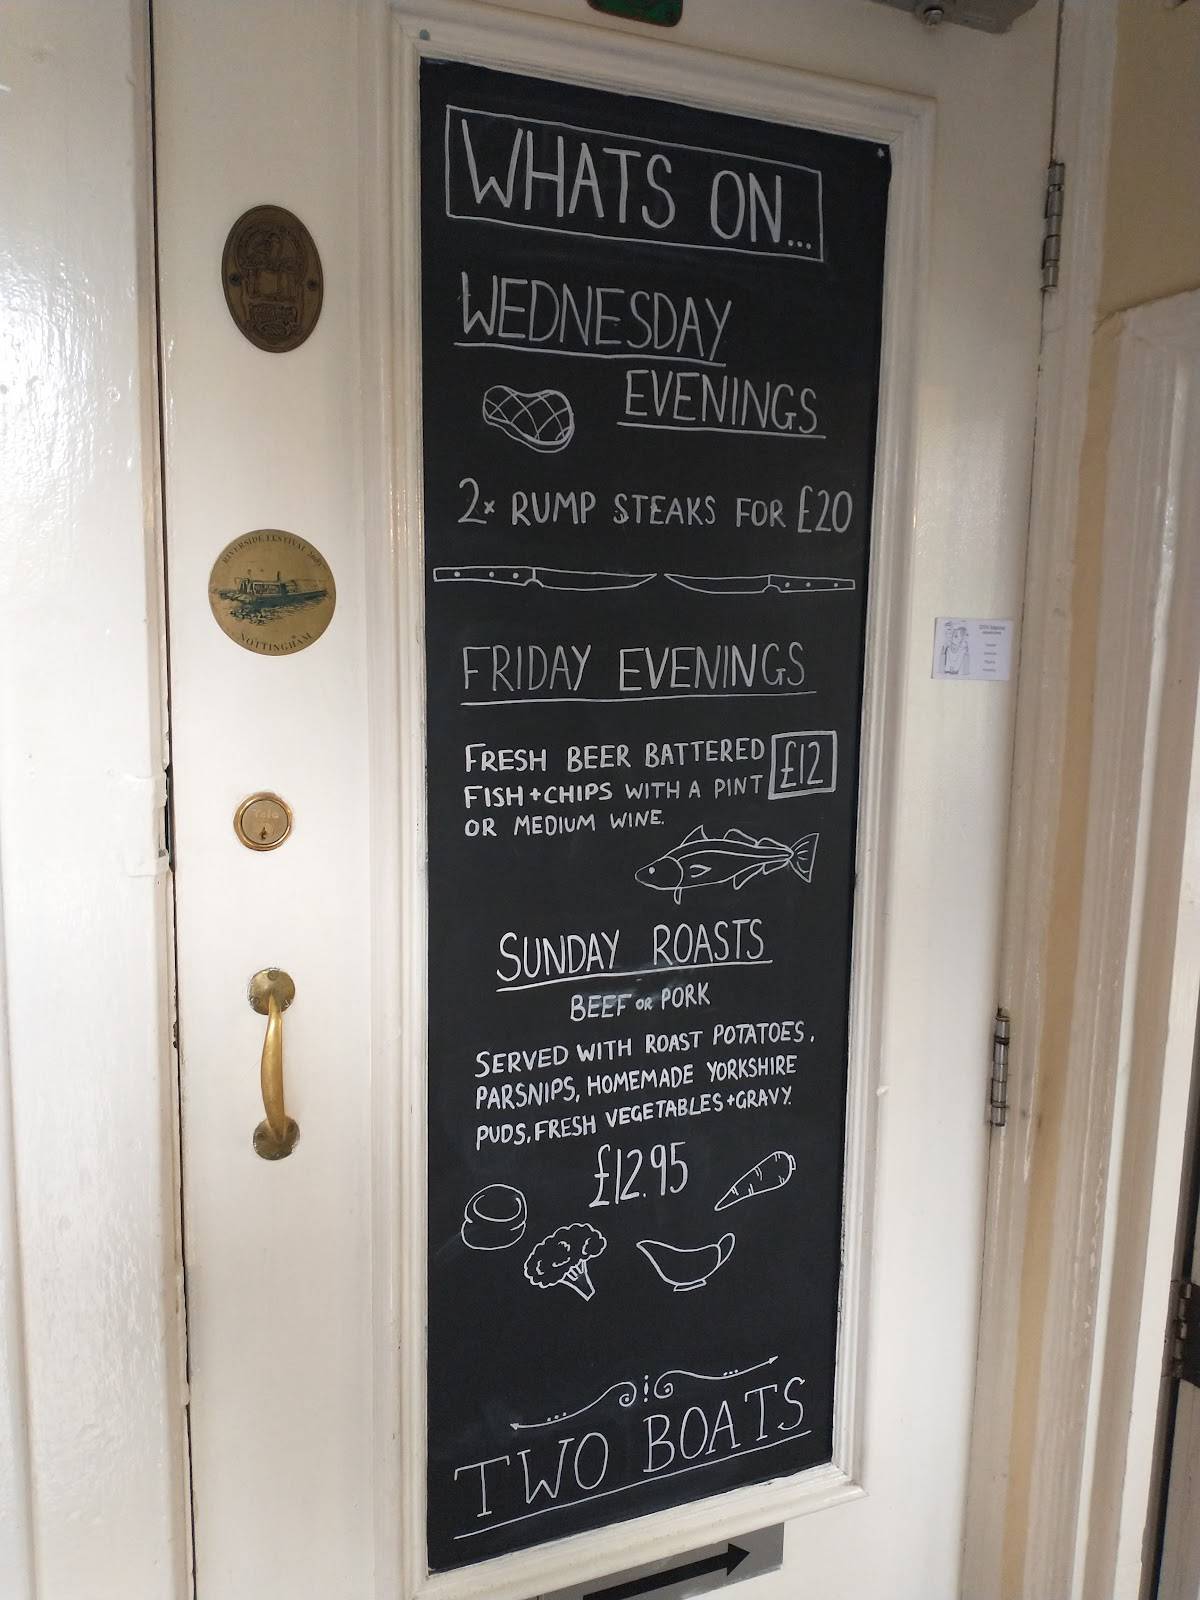 WHATS ON...
WEDNESDAY
EVENINGS
2x RUMP STEAKS FOR £20
FRIDAY EVENINGS
FRESH BEER BATTERED £12
FISH + CHIPS WITH A PINT
OR MEDIUM WINE.
SUNDAY ROASTS
BEEF OR PORK
SERVED WITH ROAST POTATOES,
PARSNIPS, HOMEMADE YORKSHIRE
PUDS, FRESH VEGETABLES + GRAVY.
£12.95
TWO BOATS
RIVERSIDE FESTIVAL
NOTTINGHAM
Yale